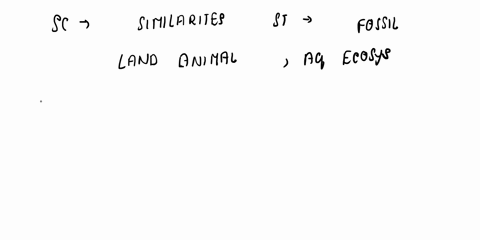 SC → SIMILARITES ST → FOSSIL
LAND ANIMAL , Aq ECOSYS